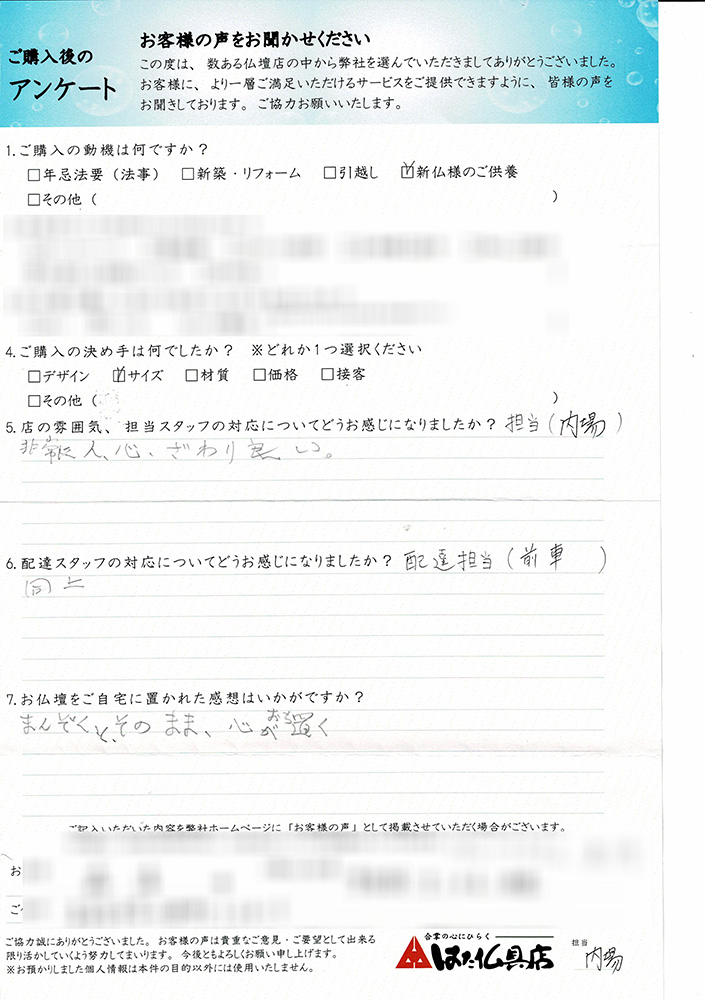 ご購入後の
アンケート
お客様の声をお聞かせください
この度は、数ある仏壇店の中から弊社を選んでいただきましてありがとうございました。
お客様に、より一層ご満足いただけるサービスをご提供できますように、皆様の声を
お聞きしております。ご協力お願いいたします。
1.ご購入の動機は何ですか？
□年忌法要（法事） □新築・リフォーム □引越し ☑新仏様のご供養
□その他（ ）
4.ご購入の決め手は何でしたか？ ※どれか1つ選択ください
□デザイン ☑サイズ □材質 □価格 □接客
□その他（ ）
5.店の雰囲気、担当スタッフの対応についてどうお感じになりましたか？ 担当（内場）
非常に人、心、ざわり良い。
6.配達スタッフの対応についてどうお感じになりましたか？ 配達担当（前車 ）
同上
7.お仏壇をご自宅に置かれた感想はいかがですか？
まんぞくと、そのまま、心が置く
ご記入いただいた内容を弊社ホームページに「お客様の声」として掲載させていただく場合がございます。
お
ご
ご協力誠にありがとうございました。お客様の声は貴重なご意見・ご要望として出来る
限り活かしていくよう努力してまいります。今後ともよろしくお願い申し上げます。
※お預かりしました個人情報は本件の目的以外には使用いたしません。
合掌の心にひらく
はた仏具店
担当
内場